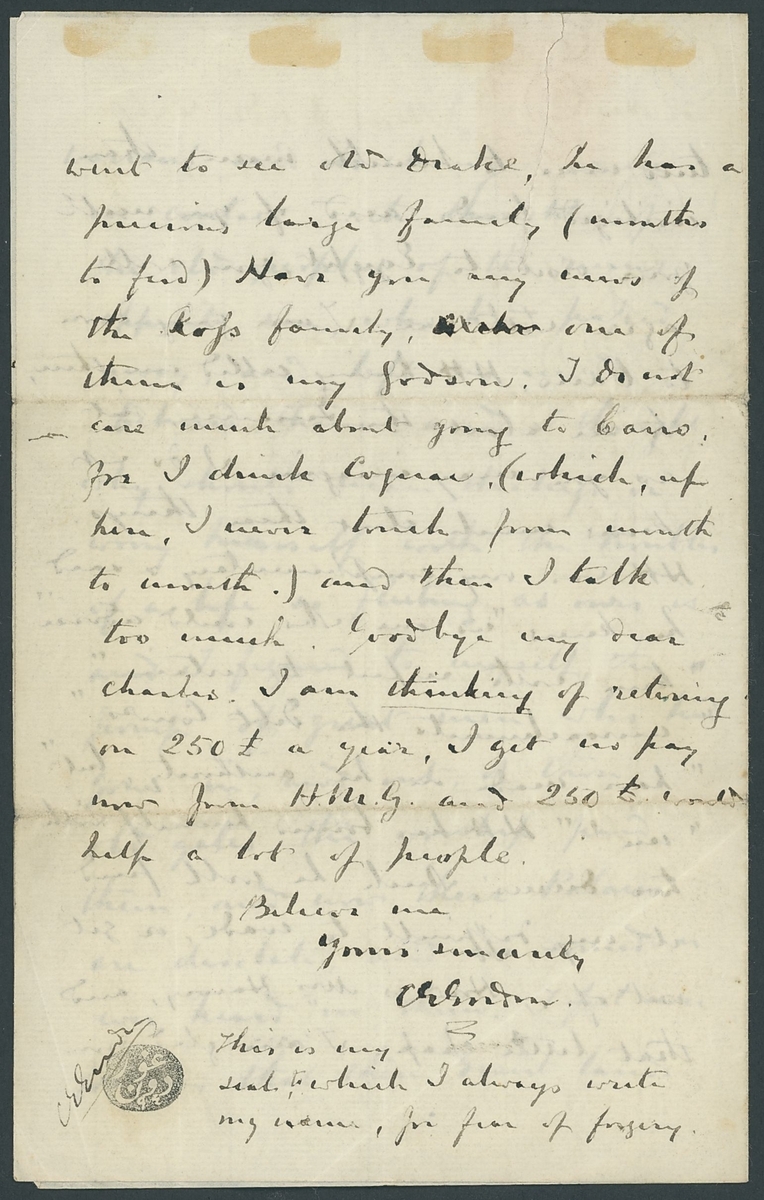 went to see old Drake, he has a
precious large family, (mouths
to feed) Have you any news of
the Ross family, one of
them is my Godson. I do not
care much about going to Cairo,
for I drink Cognac, (which, up
here, I never touch from month
to month.) and then I talk
too much. Goodbye my dear
Charles. I am thinking of retiring
on 250 £ a year, I get no pay
now from H.M.G. and 250 £ would
help a lot of people.
Believe me
Yours sincerely
CGGordon.
This is my
seal, to which I always write
my name, for fear of forgery.
CGGordon